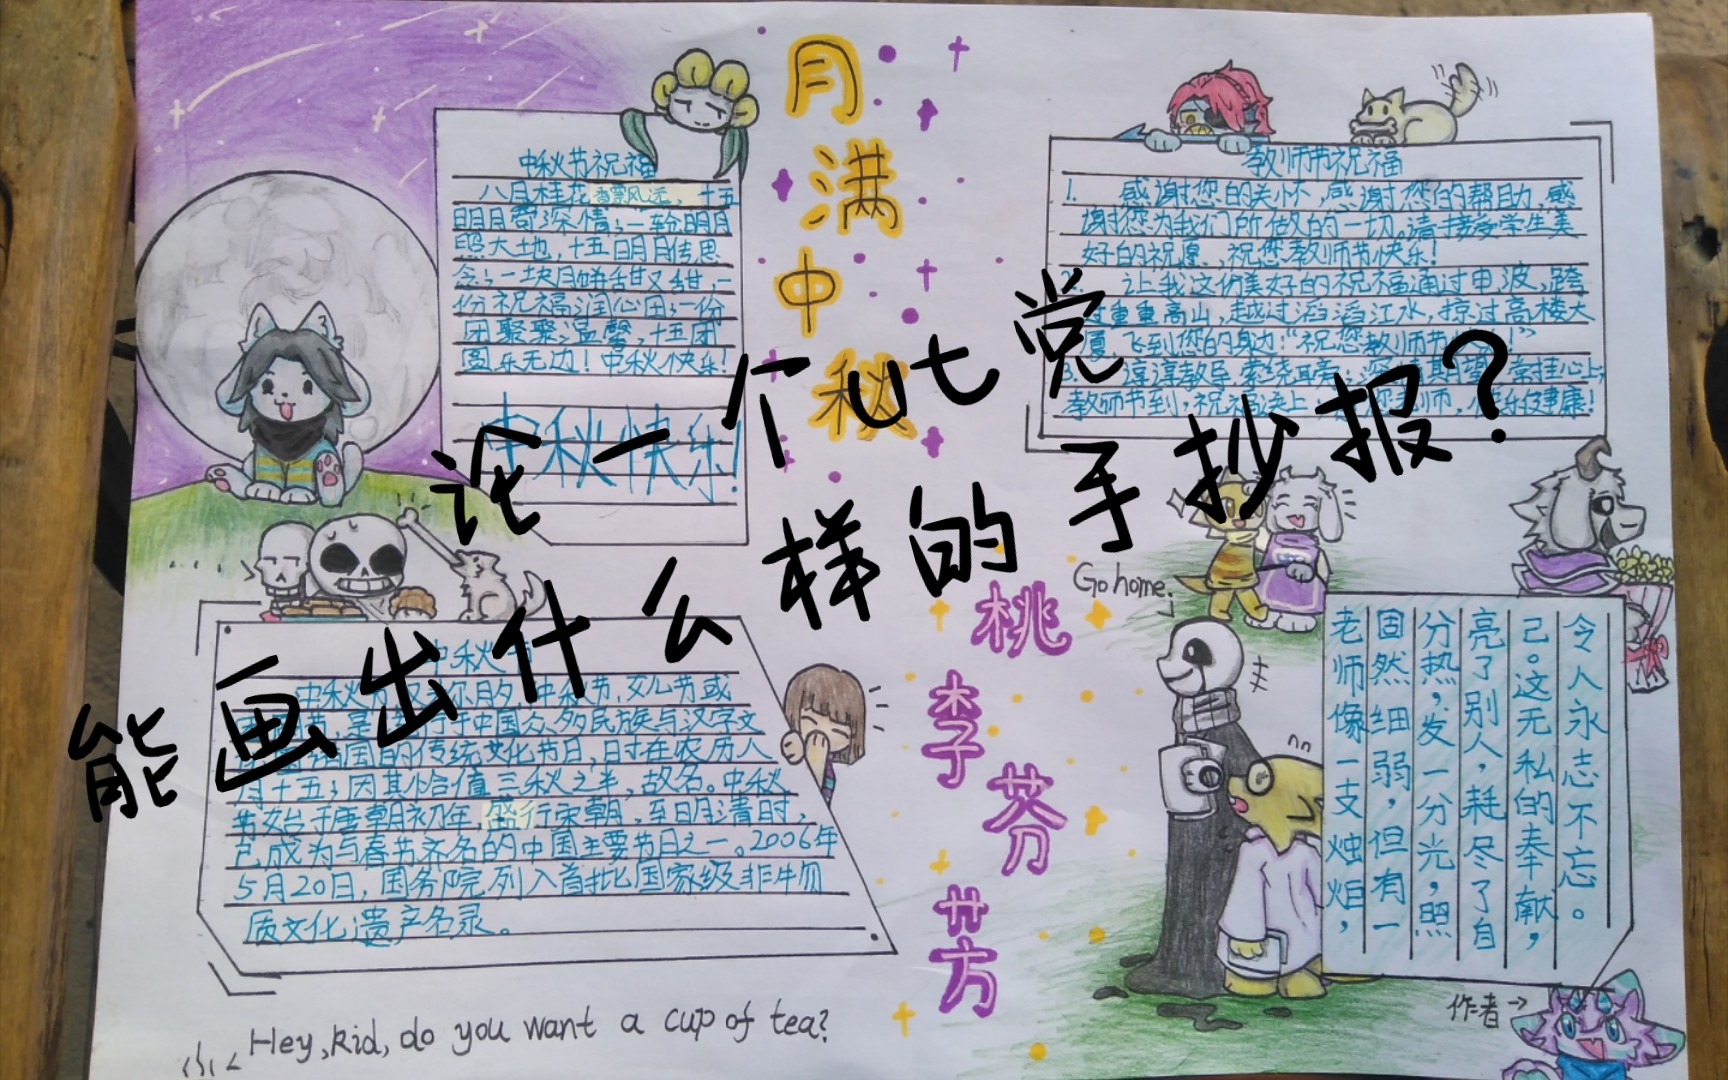 月满中秋
中秋节祝福
八月桂花香飘风远,十五
明月寄深情;一轮明月
照大地,十五明月传思
念;一块月饼甜又甜,一
份祝福润心田;一份
团聚聚温馨,十五团
圆乐无边!中秋快乐!
中秋快乐!
教师节祝福
1. 感谢您的关怀,感谢您的帮助,感
谢您为我们所做的一切,请接受学生美
好的祝愿,祝您教师节快乐!
让我这份美好的祝福通过电波,跨
重重高山,越过滔滔江水,掠过高楼大
厦,飞到您的身边:“祝您教师节
谆谆教导
教师节到,祝
论一个ut党
能画出什么样的手抄报?
中秋节,又
是
传统文化节日,时在农历八
月十五;因其恰值三秋之半,故名。中秋
节始于唐朝初年,盛行宋朝,至明清时,
已成为与春节齐名的中国主要节日之一。2006年
5月20日,国务院列入首批国家级非物
质文化遗产名录。
Hey, kid, do you want a cup of tea?
桃李芬芳
Go home.
老师像一支蜡烛,
固然细弱,但有一
分热,发一分光,照
亮了别人,耗尽了自
己。这无私的奉献,
令人永志不忘。
作者→